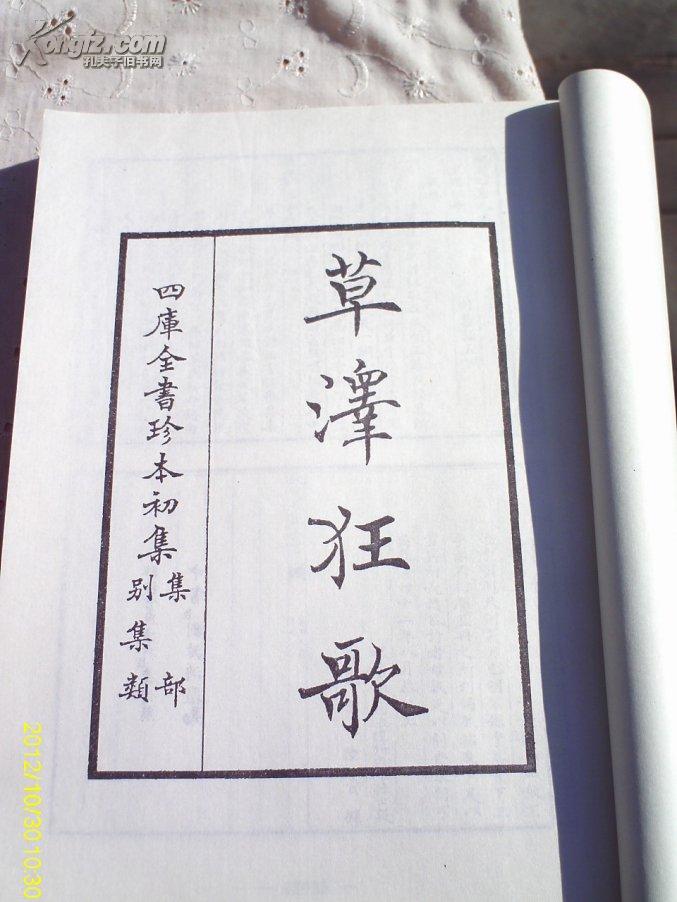 Kongfz.com
孔夫子旧书网
草澤狂歌
四庫全書珍本初集
集部
别集類
2012/10/30 10:30